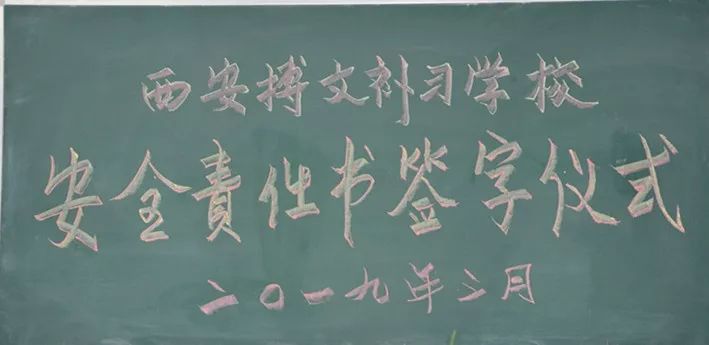 西安博文补习学校
安全責任书签字仪式
二〇一九年二月